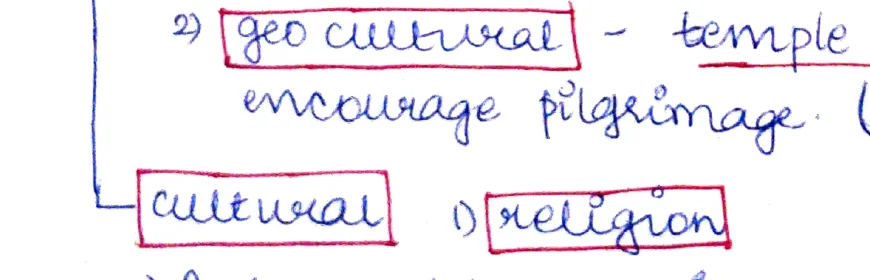 2) geo cultural - temple
encourage pilgrimage. (
cultural 1) religion